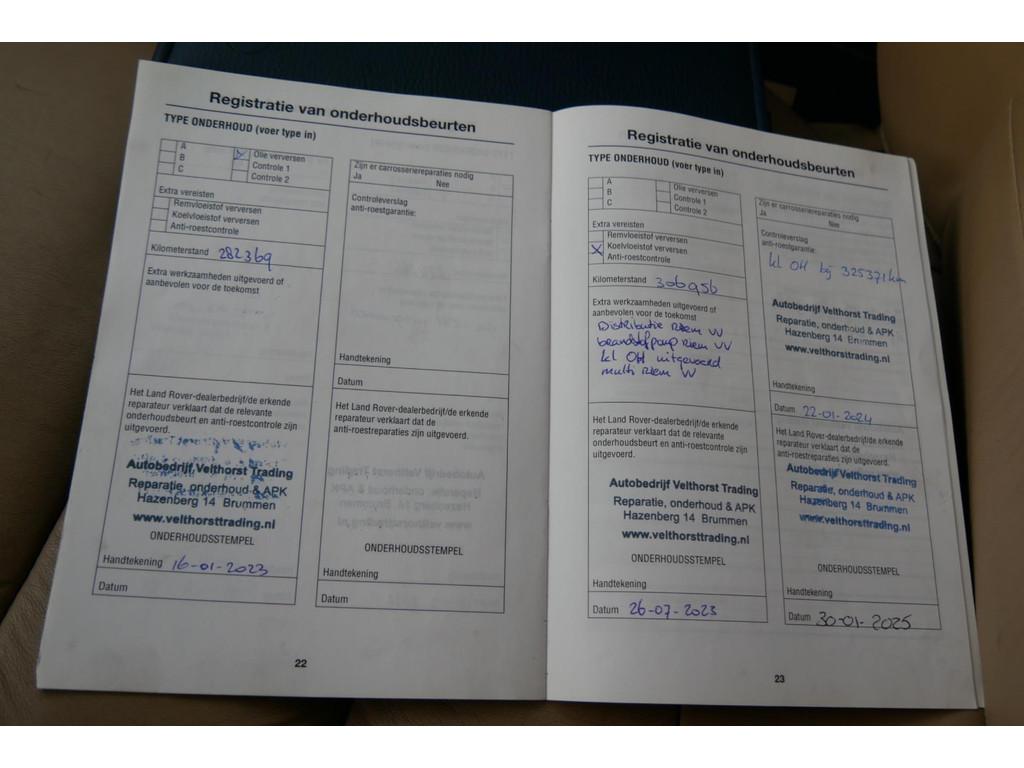 Registratie van onderhoudsbeurten
TYPE ONDERHOUD (voer type in)
A
B
C
Olie verversen
Controle 1
Controle 2
Extra vereisten
Remvloeistof verversen
Koelvloeistof verversen
Anti-roestcontrole
Kilometerstand 282369
Extra werkzaamheden uitgevoerd of
aanbevolen voor de toekomst
Het Land Rover-dealerbedrijf/de erkende
reparateur verklaart dat de relevante
onderhoudsbeurt en anti-roestcontrole zijn
uitgevoerd.
Autobedrijf Velthorst Trading
Reparatie, onderhoud & APK
Hazenberg 14 Brummen
www.velthorsttrading.nl
ONDERHOUDSSTEMPEL
Handtekening 16-01-2023
Datum
Zijn er carrosseriereparaties nodig
Ja Nee
Controleverslag
anti-roestgarantie:
Handtekening
Datum
Het Land Rover-dealerbedrijf/de erkende
reparateur verklaart dat de
anti-roestreparaties zijn uitgevoerd.
ONDERHOUDSSTEMPEL
Handtekening
Datum
22
Registratie van onderhoudsbeurten
TYPE ONDERHOUD (voer type in)
A
B
C
Olie verversen
Controle 1
Controle 2
Extra vereisten
Remvloeistof verversen
Koelvloeistof verversen
Anti-roestcontrole
Kilometerstand 306956
Extra werkzaamheden uitgevoerd of
aanbevolen voor de toekomst
Distributie Riem VV
brandstofpomp Riem VV
kl OH uitgevoerd
multi Riem VV
Het Land Rover-dealerbedrijf/de erkende
reparateur verklaart dat de relevante
onderhoudsbeurt en anti-roestcontrole zijn
uitgevoerd.
Autobedrijf Velthorst Trading
Reparatie, onderhoud & APK
Hazenberg 14 Brummen
www.velthorsttrading.nl
ONDERHOUDSSTEMPEL
Handtekening
Datum 26-07-2023
Zijn er carrosseriereparaties nodig
Ja Nee
Controleverslag
anti-roestgarantie:
kl OH bij 325371km
Autobedrijf Velthorst Trading
Reparatie, onderhoud & APK
Hazenberg 14 Brummen
www.velthorsttrading.nl
Handtekening
Datum 22-01-2024
Het Land Rover-dealerbedrijf/de erkende
reparateur verklaart dat de
anti-roestreparaties zijn uitgevoerd.
Autobedrijf Velthorst Trading
Reparatie, onderhoud & APK
Hazenberg 14 Brummen
www.velthorsttrading.nl
ONDERHOUDSSTEMPEL
Handtekening
Datum 30-01-2025
23